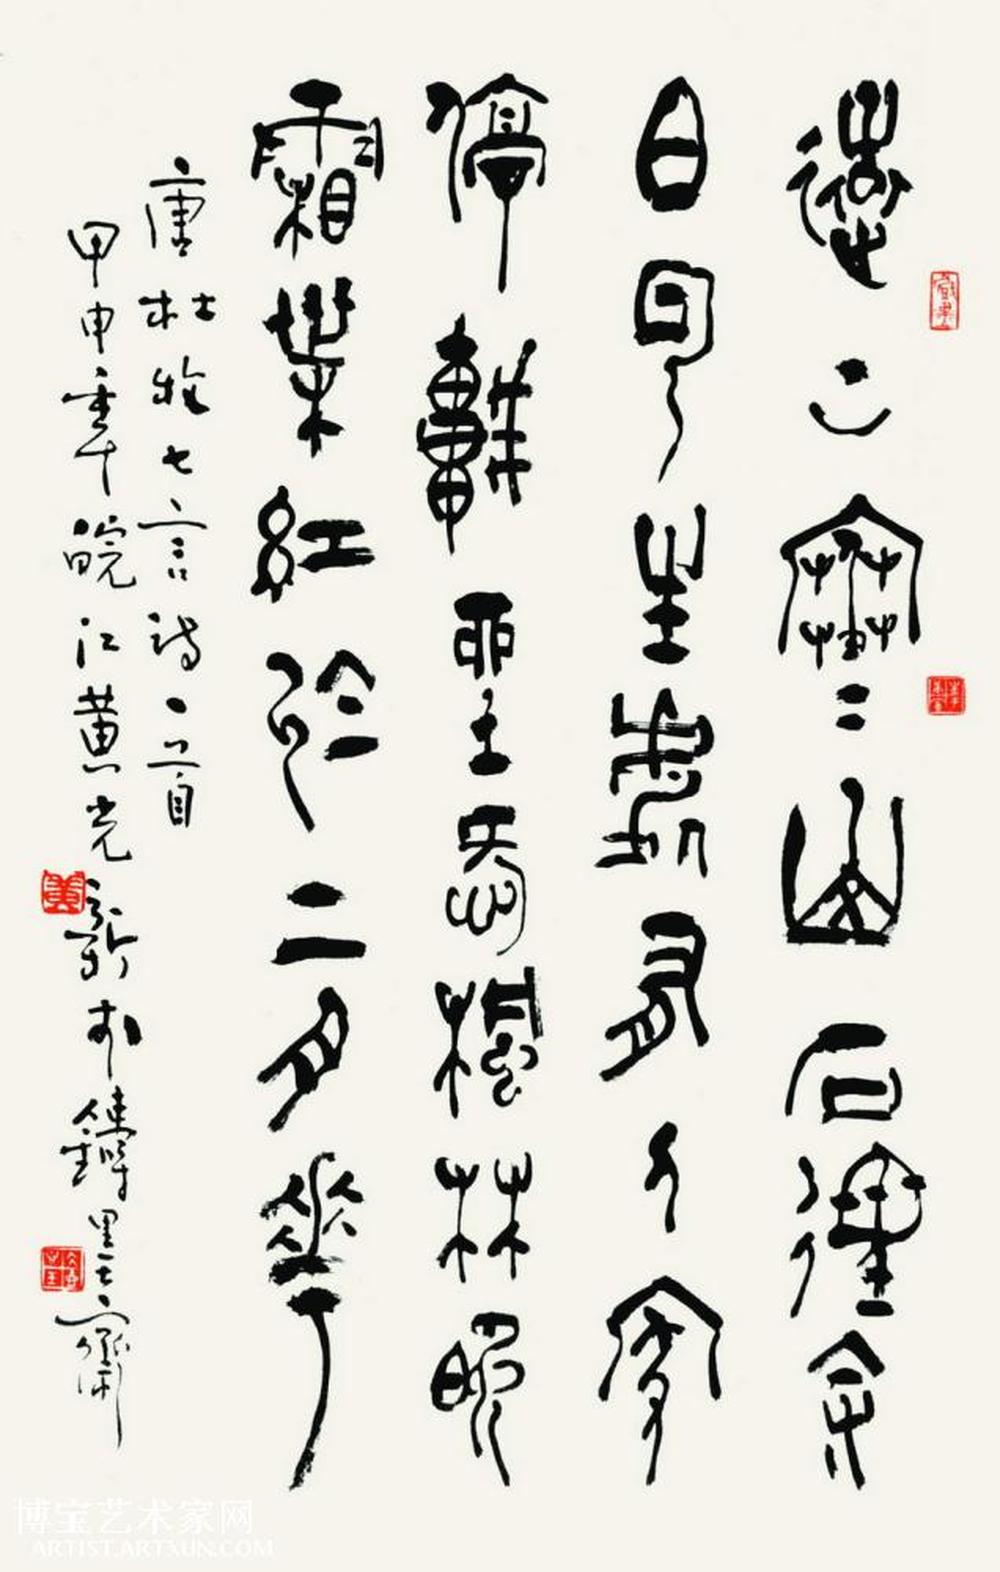 遠上寒山石徑余
白雲生處有人家
停車坐愛楓林晚
霜葉紅於二月花
唐杜牧七言詩一首
甲申年皖江黄光新於墨齋
博宝艺术家网
ARTIST.ARTXUN.COM